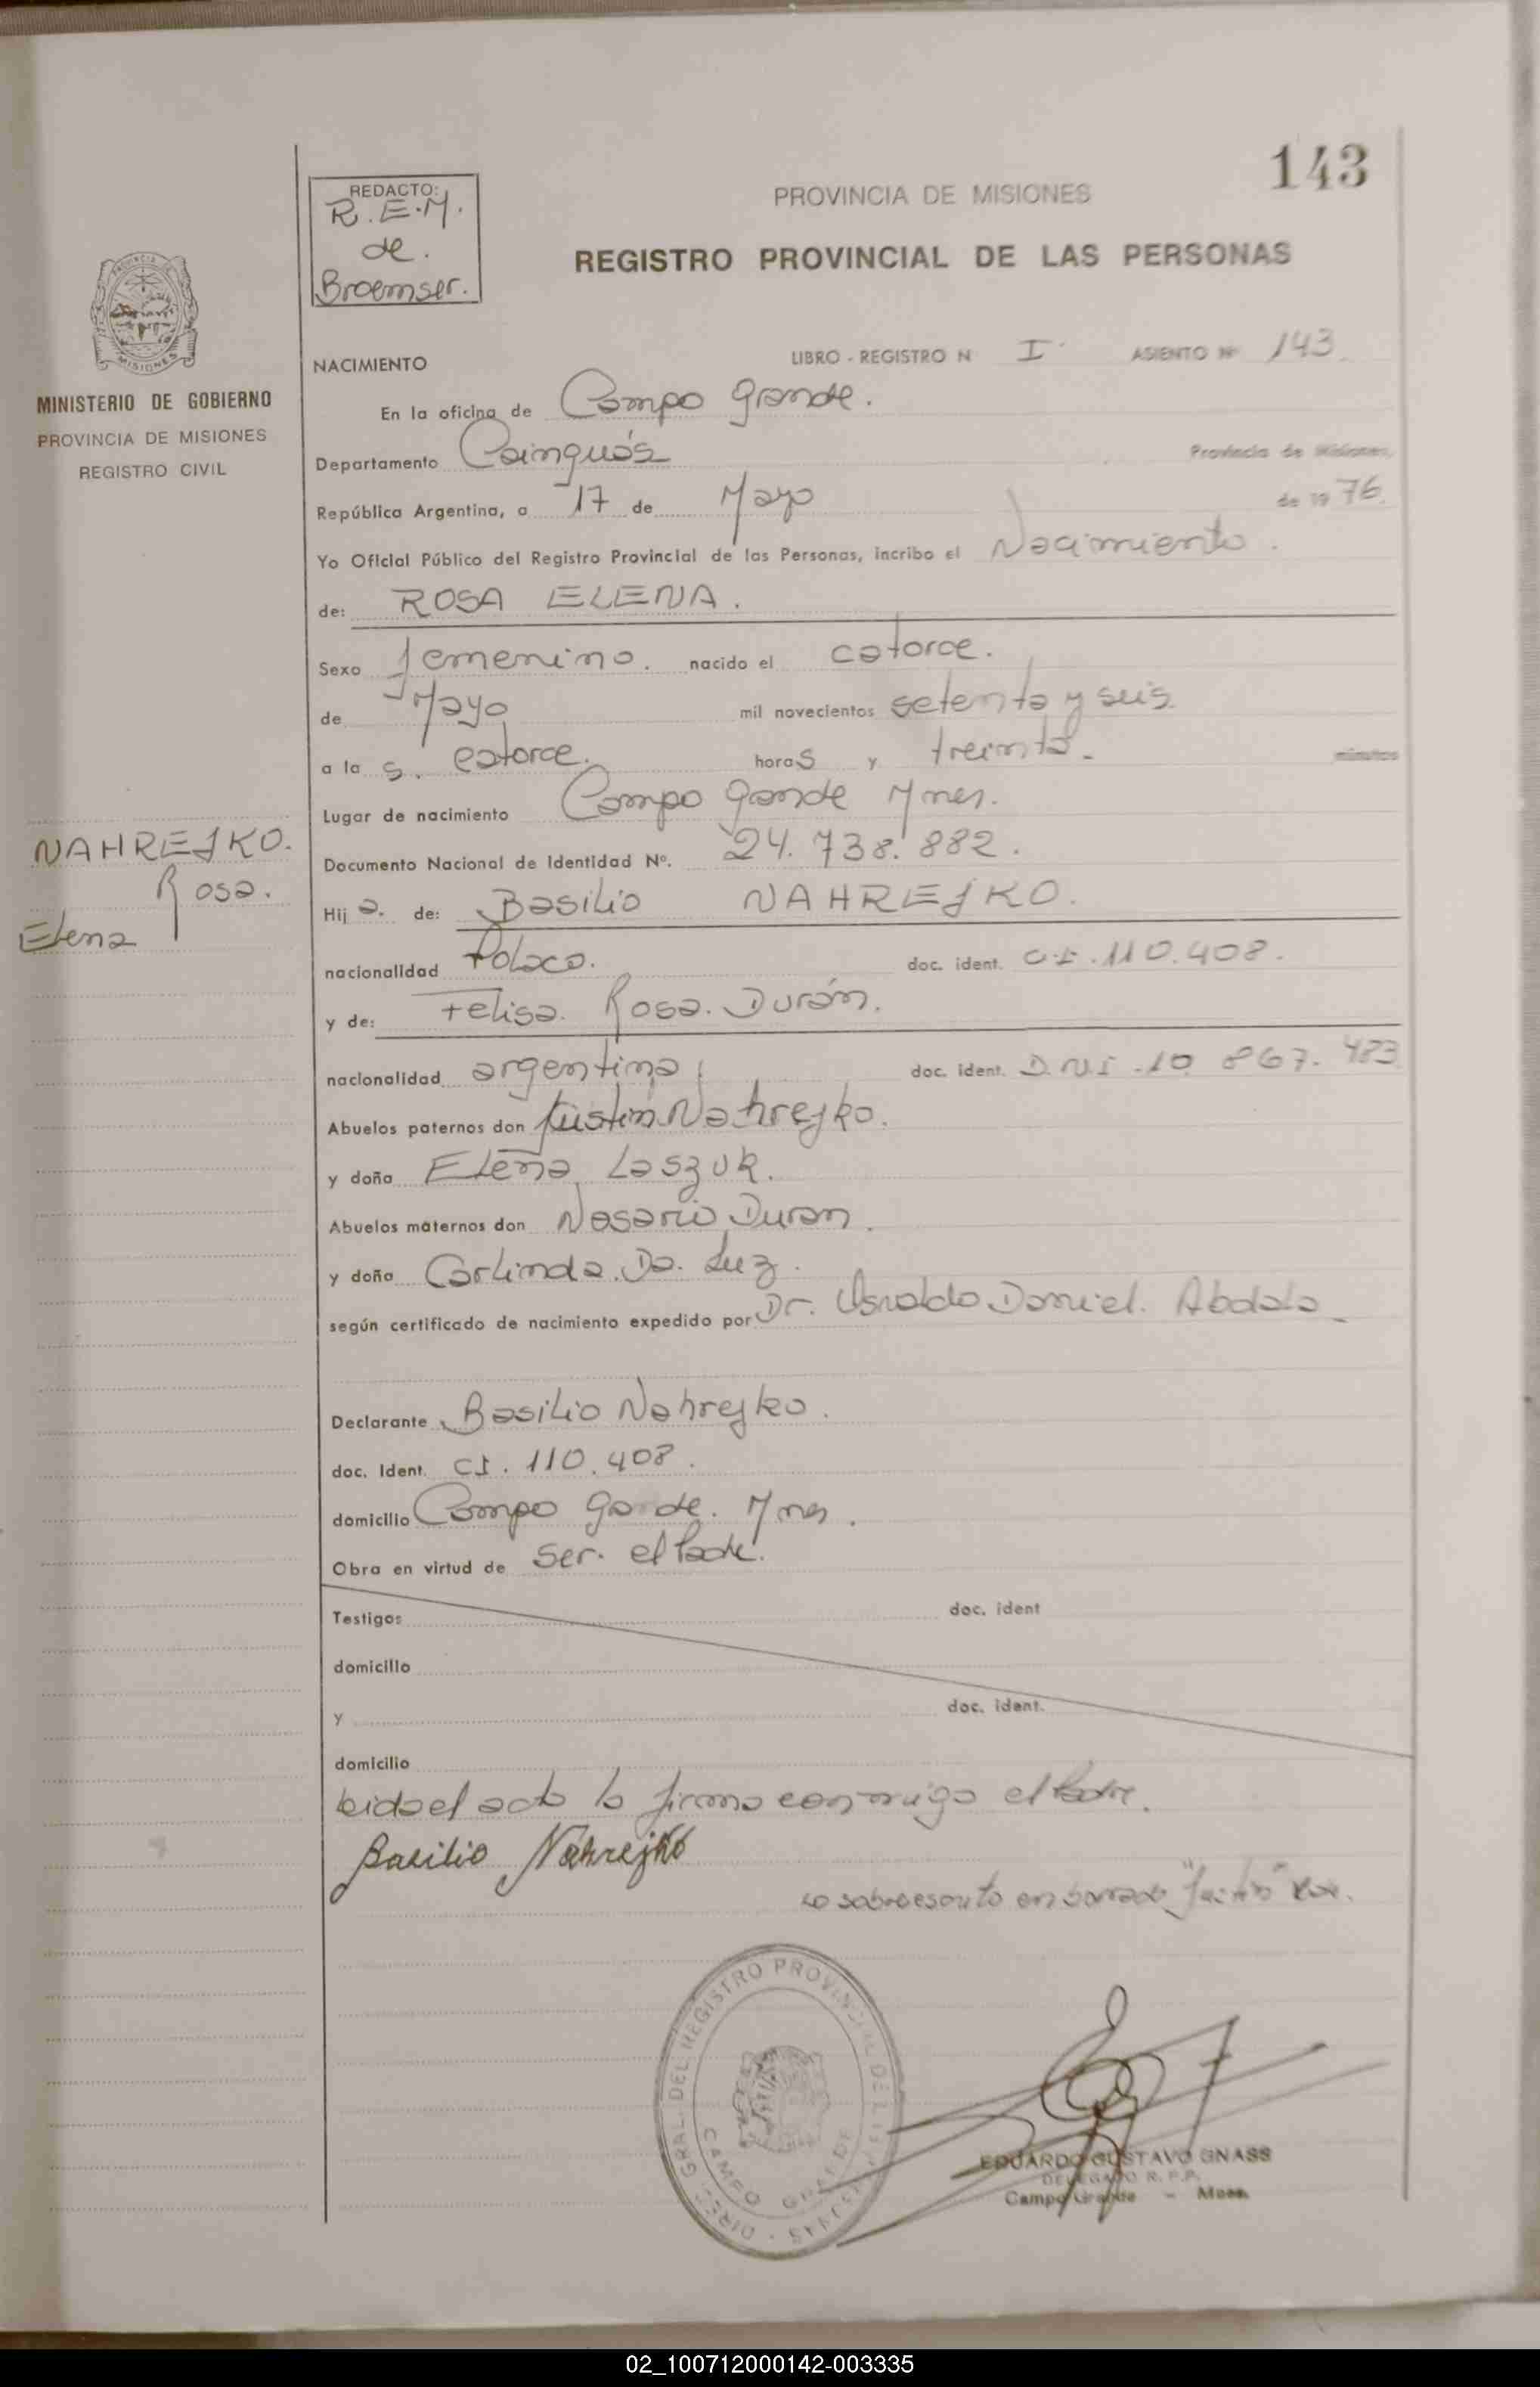 143
REDACTO:
R.E.M.
de.
Broemser.
PROVINCIA DE MISIONES
REGISTRO PROVINCIAL DE LAS PERSONAS
MINISTERIO DE GOBIERNO
PROVINCIA DE MISIONES
REGISTRO CIVIL
NACIMIENTO LIBRO - REGISTRO N I ASIENTO Nº 143
En la oficina de Campo Grande.
Departamento Cainguás Provincia de Misiones,
República Argentina, a 17 de Mayo de 19 76
Yo Oficial Público del Registro Provincial de las Personas, incribo el Nacimiento.
de: ROSA ELENA.
Sexo femenino. nacido el catorce.
de Mayo mil novecientos setenta y seis
a la s. catorce. horas y treinta- minutos
Lugar de nacimiento Campo Grande Mnes.
Documento Nacional de Identidad Nº. 24.738.882.
NAHREJKO.
Rosa.
Elena
Hij a. de: Basilio NAHREJKO.
nacionalidad Polaco. doc. ident. C.I.110.408.
y de: Felisa Rosa Durán.
nacionalidad argentina doc. ident. D.N.I.10 867.483
Abuelos paternos don Justin Nahrejko.
y doña Elena Laszuk.
Abuelos maternos don Nasario Duran.
y doña Carlinda Da Luz.
según certificado de nacimiento expedido por Dr. Osvaldo Daniel Abdala-
Declarante Basilio Nahrejko.
doc. Ident. CI. 110.408.
domicilio Campo Grande. Mnes.
Obra en virtud de ser el Padre.
Testigos doc. ident
domicilio
y doc. ident.
domicilio
leido el acto lo firma conmigo el Padre.
Basilio Nahrejko
Lo sobreescrito en borrado "Justin"
DIREC. GRAL. DEL REGISTRO PROVINCIAL DE LAS PERSONAS
CAMPO GRANDE
EDUARDO GUSTAVO GNASS
DELEGADO R. P. P.
Campo Grande - Mnes.
02_100712000142-003335